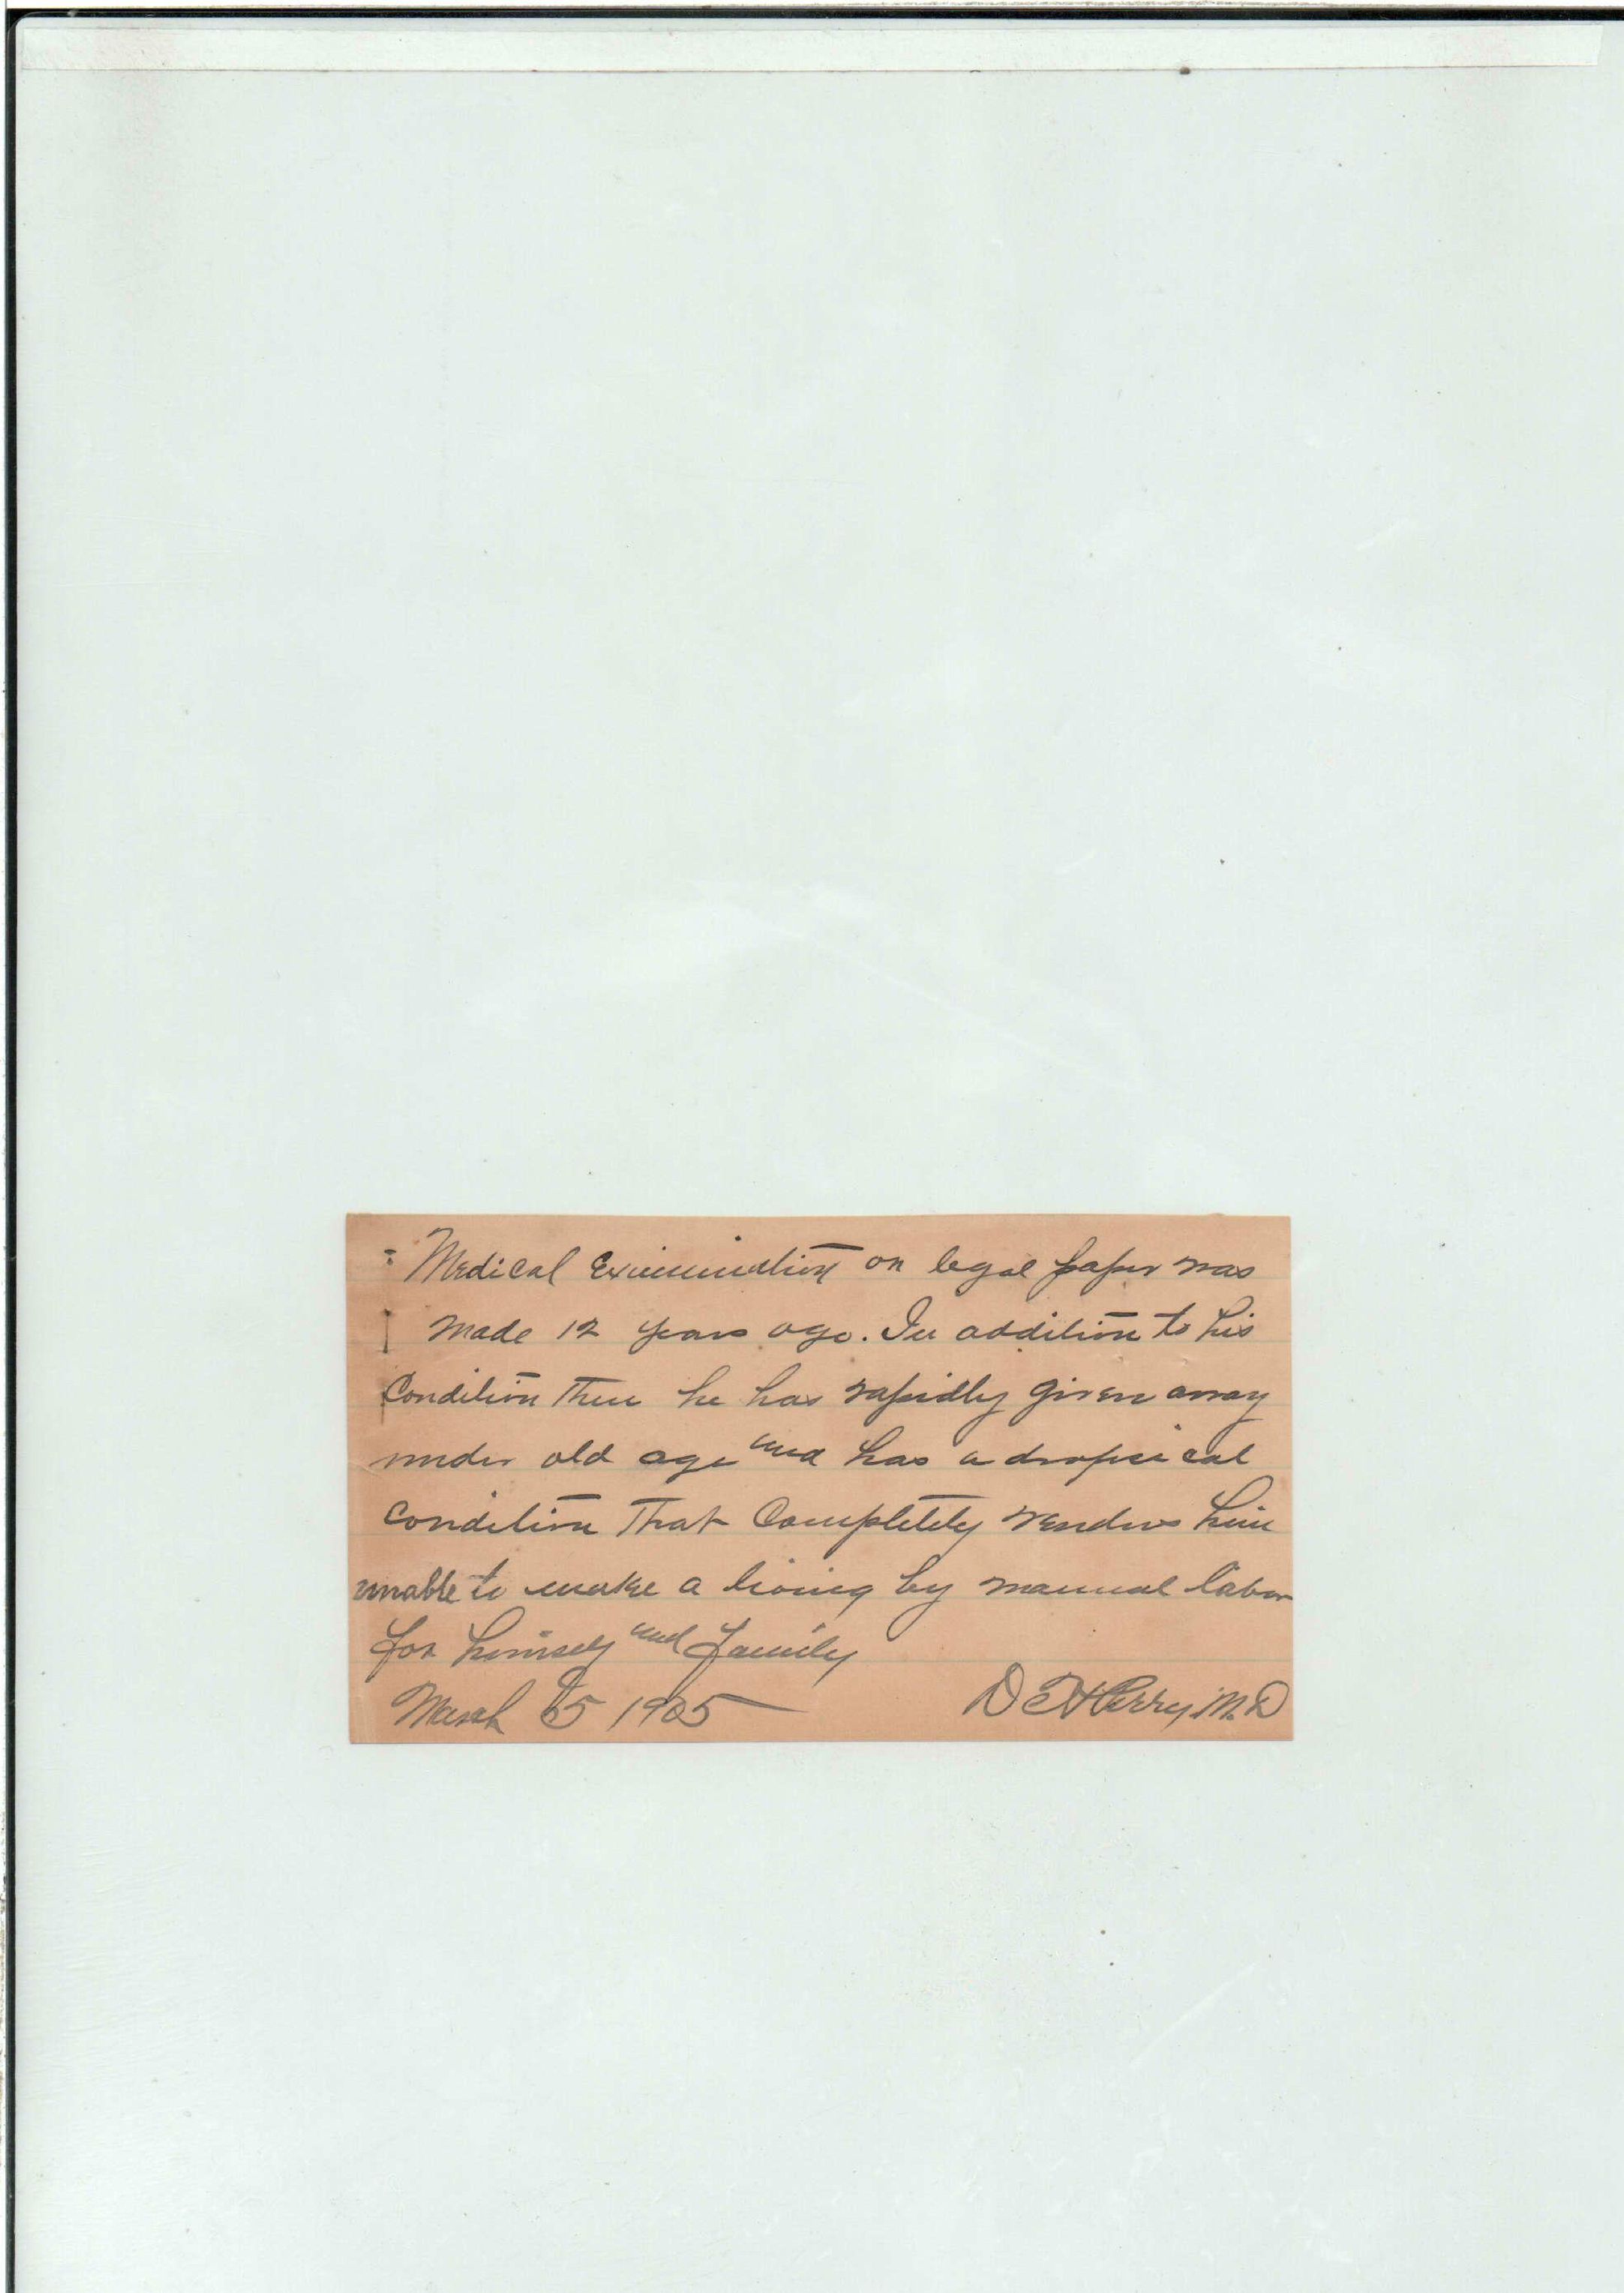 Medical Examination on legal paper was
made 12 years ago. In addition to his
Condition then he has rapidly given away
under old age and has a dropsical
condition that Completely renders him
unable to make a living by manual labor
for himself and family
March 1905 Perry, M.D